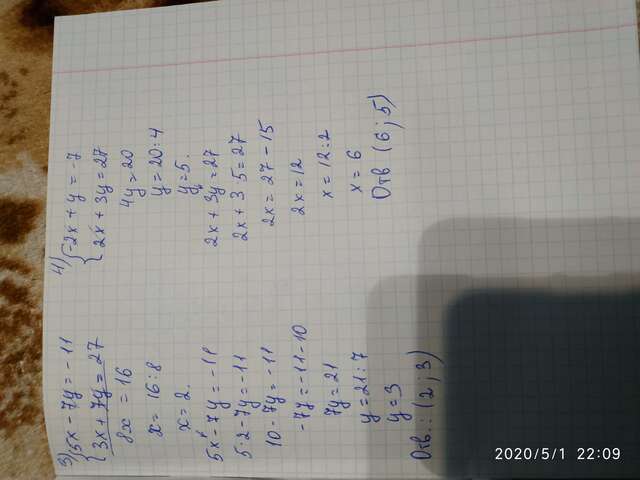 3) 5x - 7y = -11
3x + 7y = 27
8x = 16
x = 16 : 8
x = 2.
5x - 7y = -11
5·2 - 7y = -11
10 - 7y = -11
-7y = -11 - 10
7y = 21
y = 21 : 7
y = 3
Отв.: (2 ; 3)
4) -2x + y = -7
2x + 3y = 27
4y = 20
y = 20 : 4
y = 5.
2x + 3y = 27
2x + 3 5 = 27
2x = 27 - 15
2x = 12
x = 12 : 2
x = 6
Отв (6 ; 5)
2020/5/1 22:09